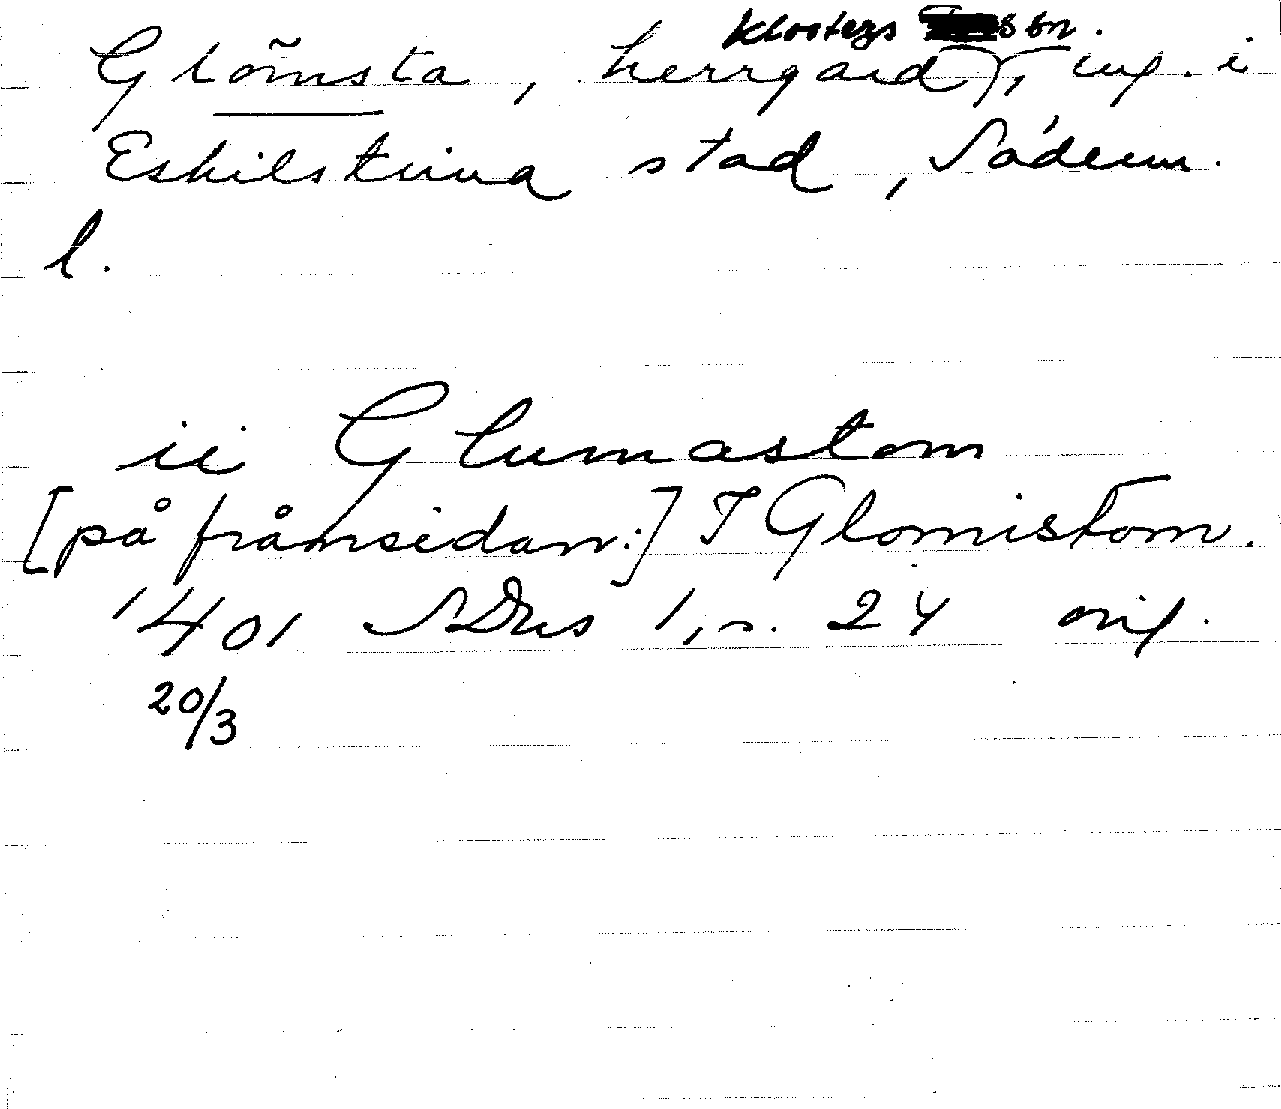 Klosters sn.
Glömsta, herrgård, ing. i
Eskilstuna stad, Söderm.
l.
ii Glumastom
[på framsidan:] I Glomistom.
1401 SDns 1, s. 24 orig.
20/3